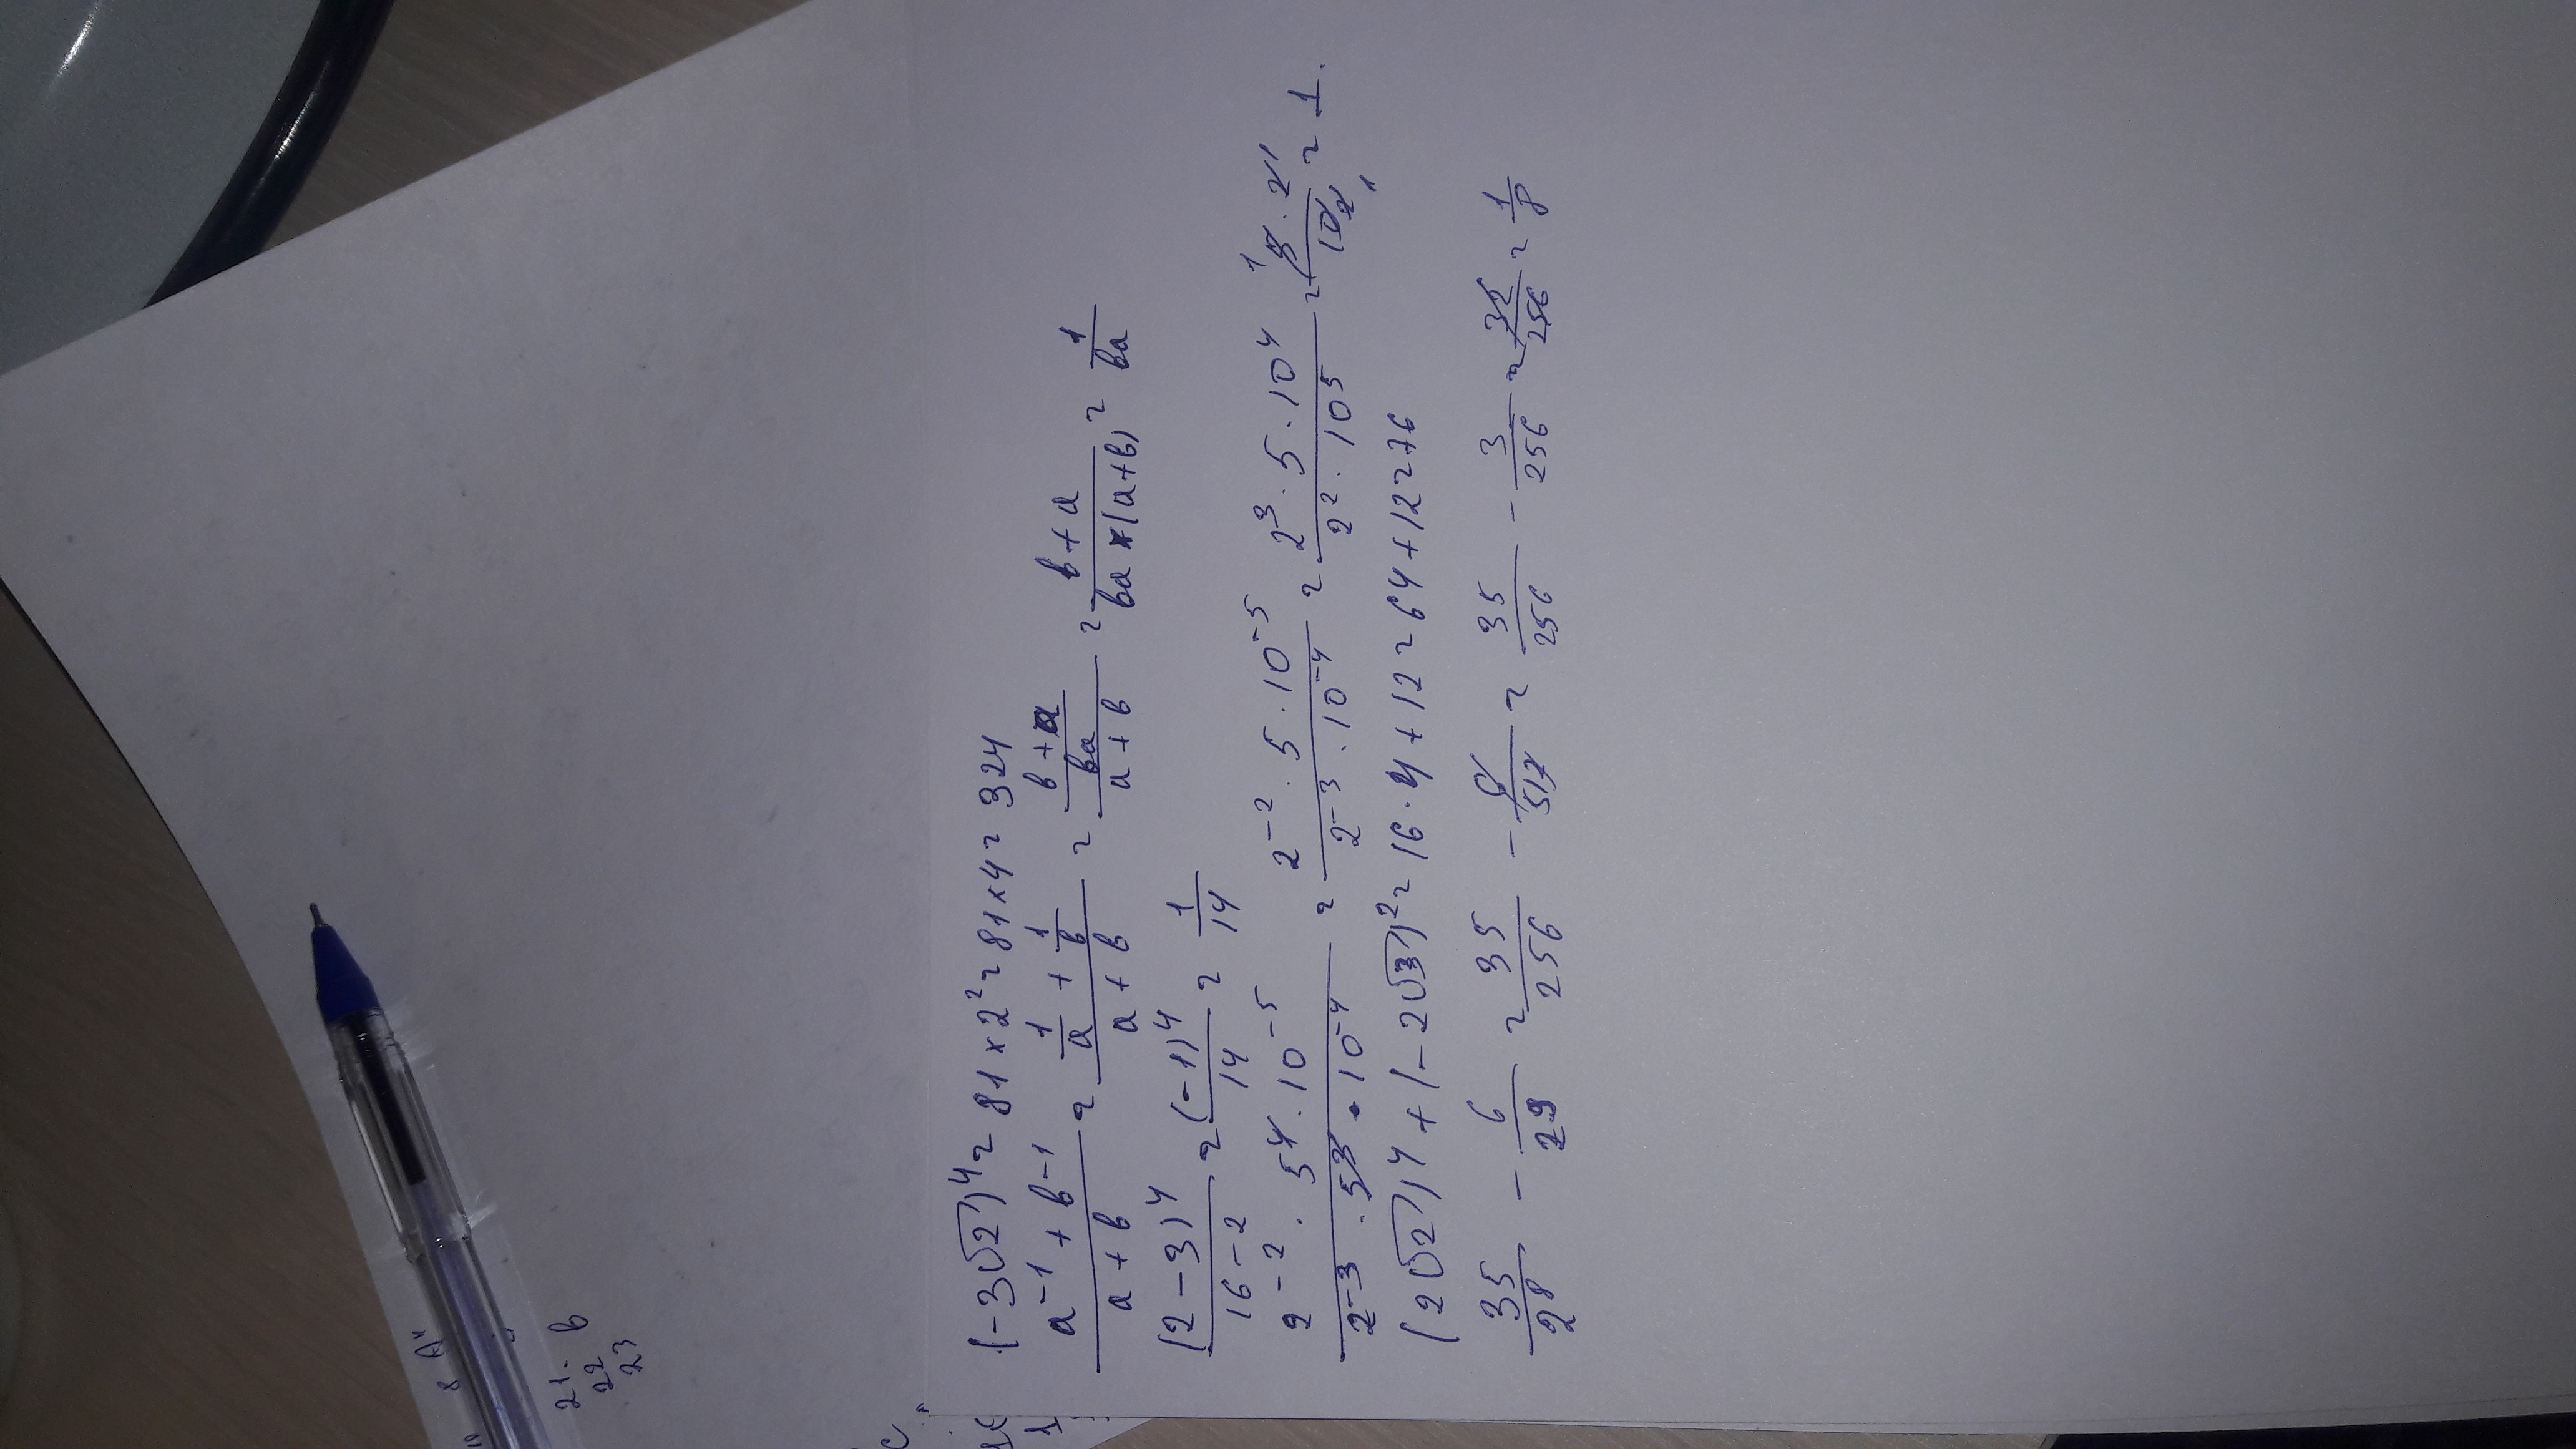 (-3√2)⁴ = 81×2² = 81×4 = 324
(a⁻¹+b⁻¹)/(a+b) = (1/a + 1/b)/(a+b) = ((b+a)/(ba))/(a+b) = (b+a)/(ba×(a+b)) = 1/(ba)
(2-3)⁴/(16-2) = (-1)⁴/14 = 1/14
(2⁻²·5⁴·10⁻⁵)/(2⁻³·5³·10⁻⁴) = (2⁻²·5·10⁻⁵)/(2⁻³·10⁻⁴) = (2³·5·10⁴)/(2²·10⁵) = (5·2)/10 = 1.
(2√2)⁴+(-2√3)² = 16·4+12 = 64+12 = 76
35/2⁸ - 6/2⁹ = 35/256 - 6/512 = 35/256 - 3/256 = 32/256 = 1/8
21. b
22
23